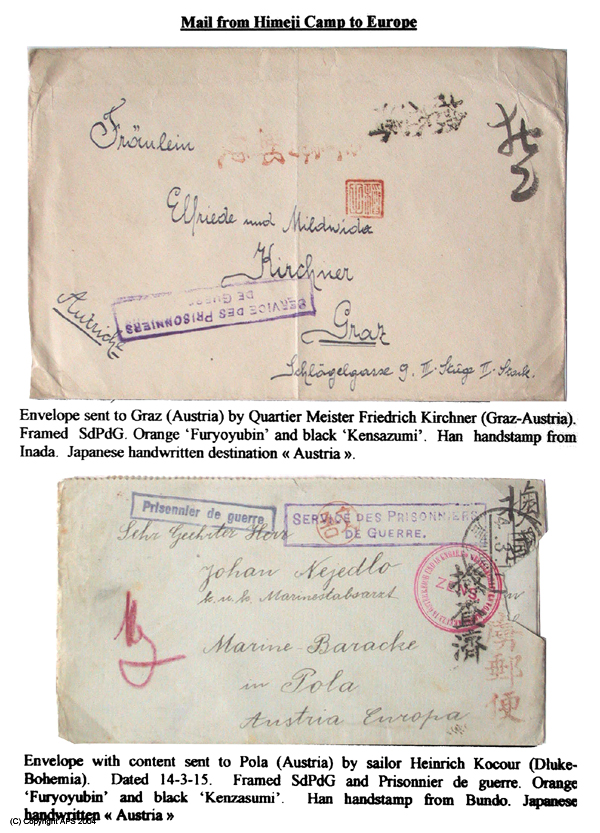 Mail from Himeji Camp to Europe
Fräulein
Elfriede und Mildwida
Kirchner
Graz
Schlögelgasse 9. II. Stiege II. Stock.
Autriche
SERVICE DES PRISONNIERS
DE GUERRE
Envelope sent to Graz (Austria) by Quartier Meister Friedrich Kirchner (Graz-Austria).
Framed SdPdG. Orange ‘Furyoyubin’ and black ‘Kensazumi’. Han handstamp from
Inada. Japanese handwritten destination « Austria ».
Prisonnier de guerre
SERVICE DES PRISONNIERS
DE GUERRE.
Sehr Geehrter Herr
Johan Nejedlo
k. u. k. Marinestabsarzt
Marine-Baracke
in Pola
Austria Europa
検査済
虜郵便
Envelope with content sent to Pola (Austria) by sailor Heinrich Kocour (Dluke-
Bohemia). Dated 14-3-15. Framed SdPdG and Prisonnier de guerre. Orange
‘Furyoyubin’ and black ‘Kenzasumi’. Han handstamp from Bundo. Japanese
handwritten « Austria »
(C) Copyright APS 2004